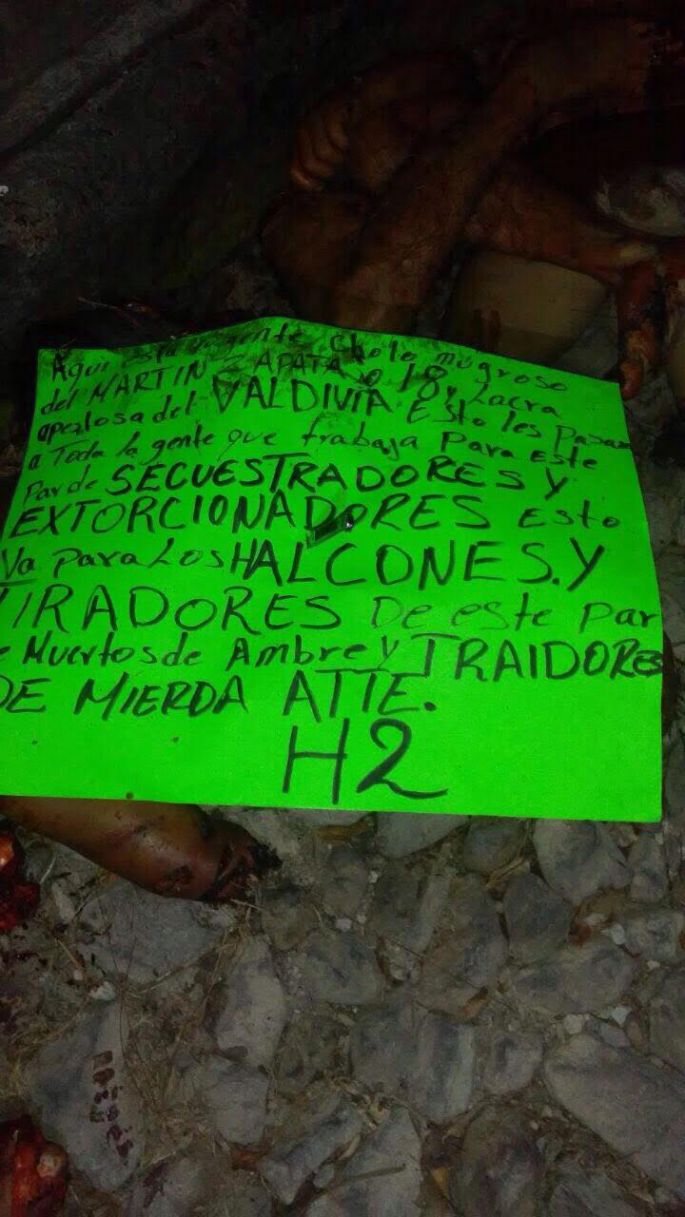 Aqui esta tu gente Cholo mugroso
del MARTIN ZAPATA o 18 y Lacra
apeztosa del VALDIVIA Esto les pasara
a Toda la gente que trabaja Para Este
Par de SECUESTRADORES Y
EXTORCIONADORES Esto
Va Para Los HALCONES. Y
TIRADORES De este Par
e Muertos de Ambre y TRAIDORES
DE MIERDA ATTE.
H2